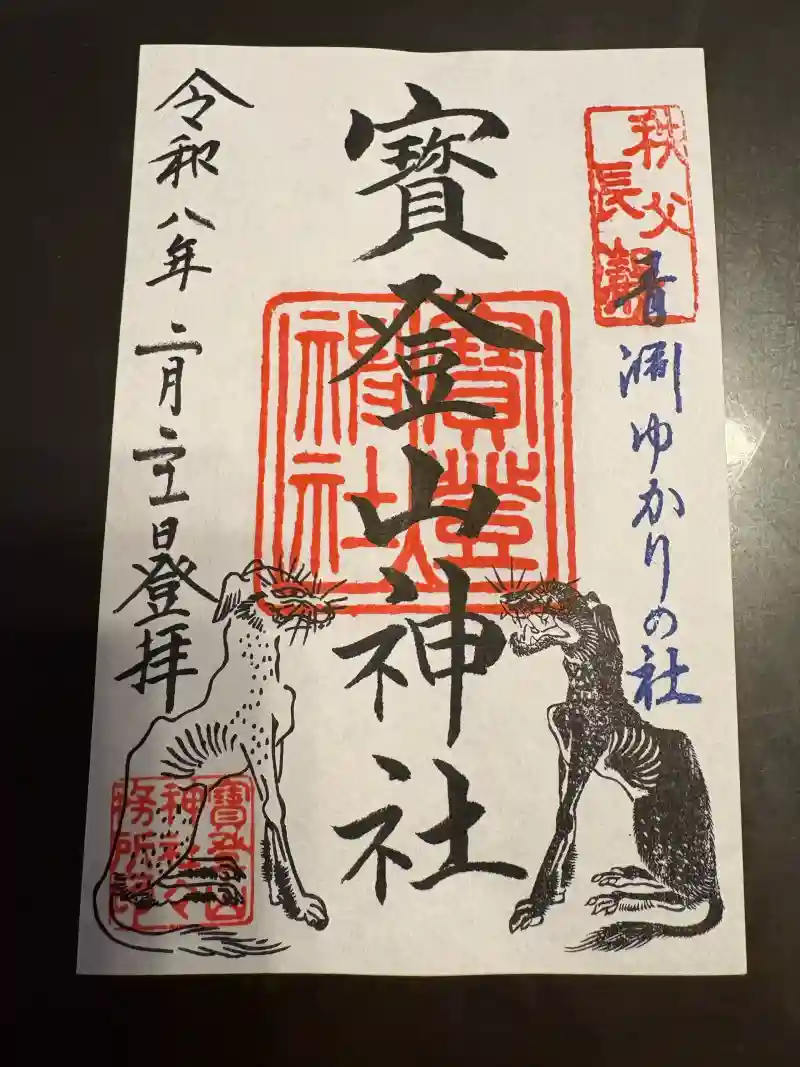 秩父
長瀞
青渊ゆかりの社
寳登山神社
寶登山
神社
令和八年二月二十一日登拝
寶登山
神社々
務所印